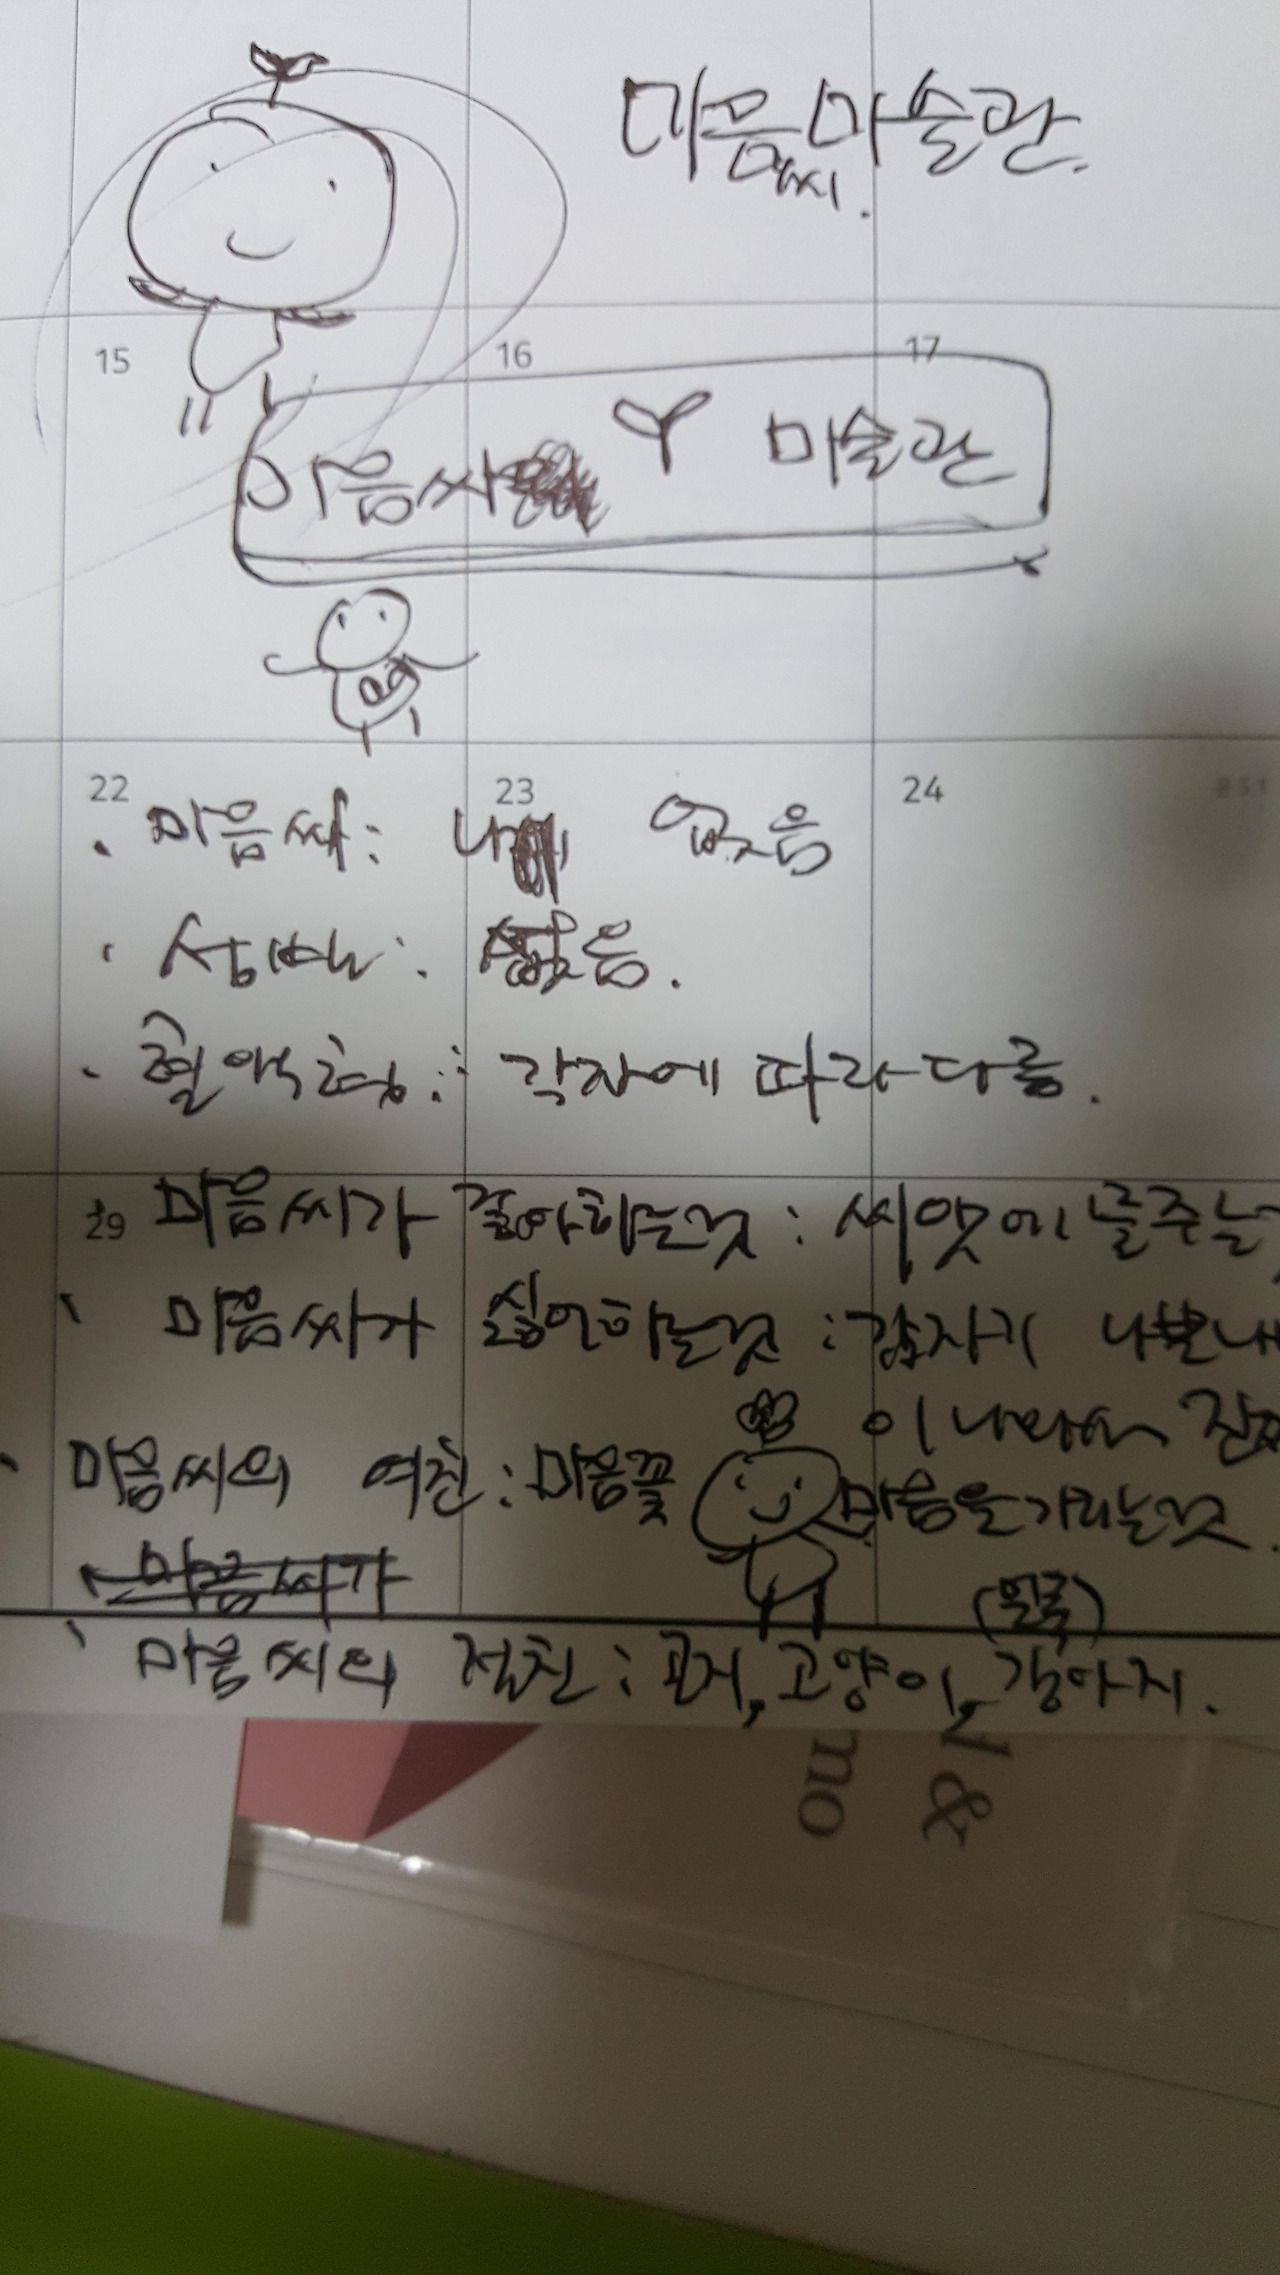 마음씨 미술관.
15 16 17
마음씨 미술관
22 23 24
· 마음씨: 나 없음
· 성별: 없음.
· 혈액형: 각자에 따라 다름.
29 마음씨가 좋아하는것: 씨앗에 물주는
· 마음씨가 싫어하는것: 갑자기 나쁜
이 나와서
· 마음씨의 여친: 마음꽃 마음을 가리는것.
마음씨가
(왼쪽)
· 마음씨의 절친: 고양이, 강아지.
no
&